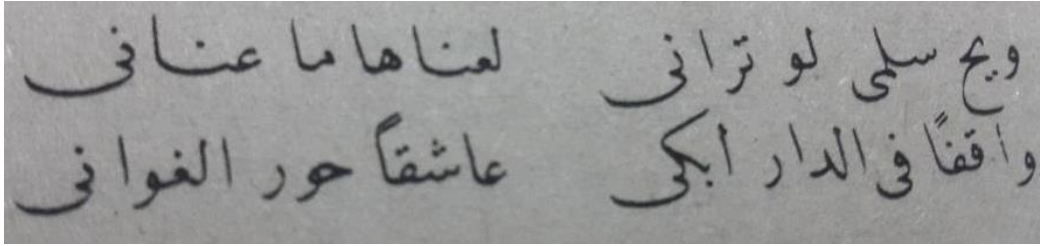 ويح سلمى لو ترانى لعناها ما عنانى
واقفًا فى الدار أبكى عاشقاً حور الغوانى